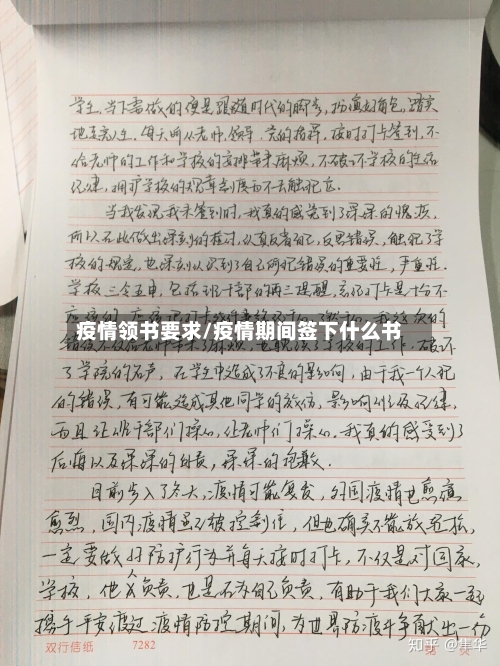 学生,当下需做的便是跟随时代的脚步,扮演好角色,踏实
地走完人生。每天听从老师、领导、党的指挥,按时打卡签到,不
给老师的工作和学校的安排带来麻烦,不破坏学校的生活
纪律,拥护学校的规章制度而不去触犯它。
当我发现我未签到时,我真的感觉到了深深的愧疚,
所以在此做出深刻的检讨,认真反省自己,反思错误,触犯了学
校的规定,也深刻认识到了自己所犯错误的重要性,严重性。
学校三令五申,包括班干部的再三提醒,忘记打卡是十分不
疫情领书要求/疫情期间签下什么书
了学院的名声,在学生中造成了不良的影响,由于我一个人犯
的错误,有可能造成其他同学的效仿,影响班级纪律,
而且让班干部们操心,让老师们操心。我真的感受到了
后悔以及深深的自责,深深的抱歉。
目前步入了冬天,疫情可能复发,外国疫情也愈演
愈烈,国内疫情虽已被控制住,但也确实不能放轻松,
一定要做好防护行为并每天按时打卡,不仅是对国家,
学校,他人负责,也是在为自己负责,有助于我们大家一起
携手平安渡过疫情防控期间,为世界防疫斗争献出一份
双行信纸 7282 第 页
知乎 @隼华